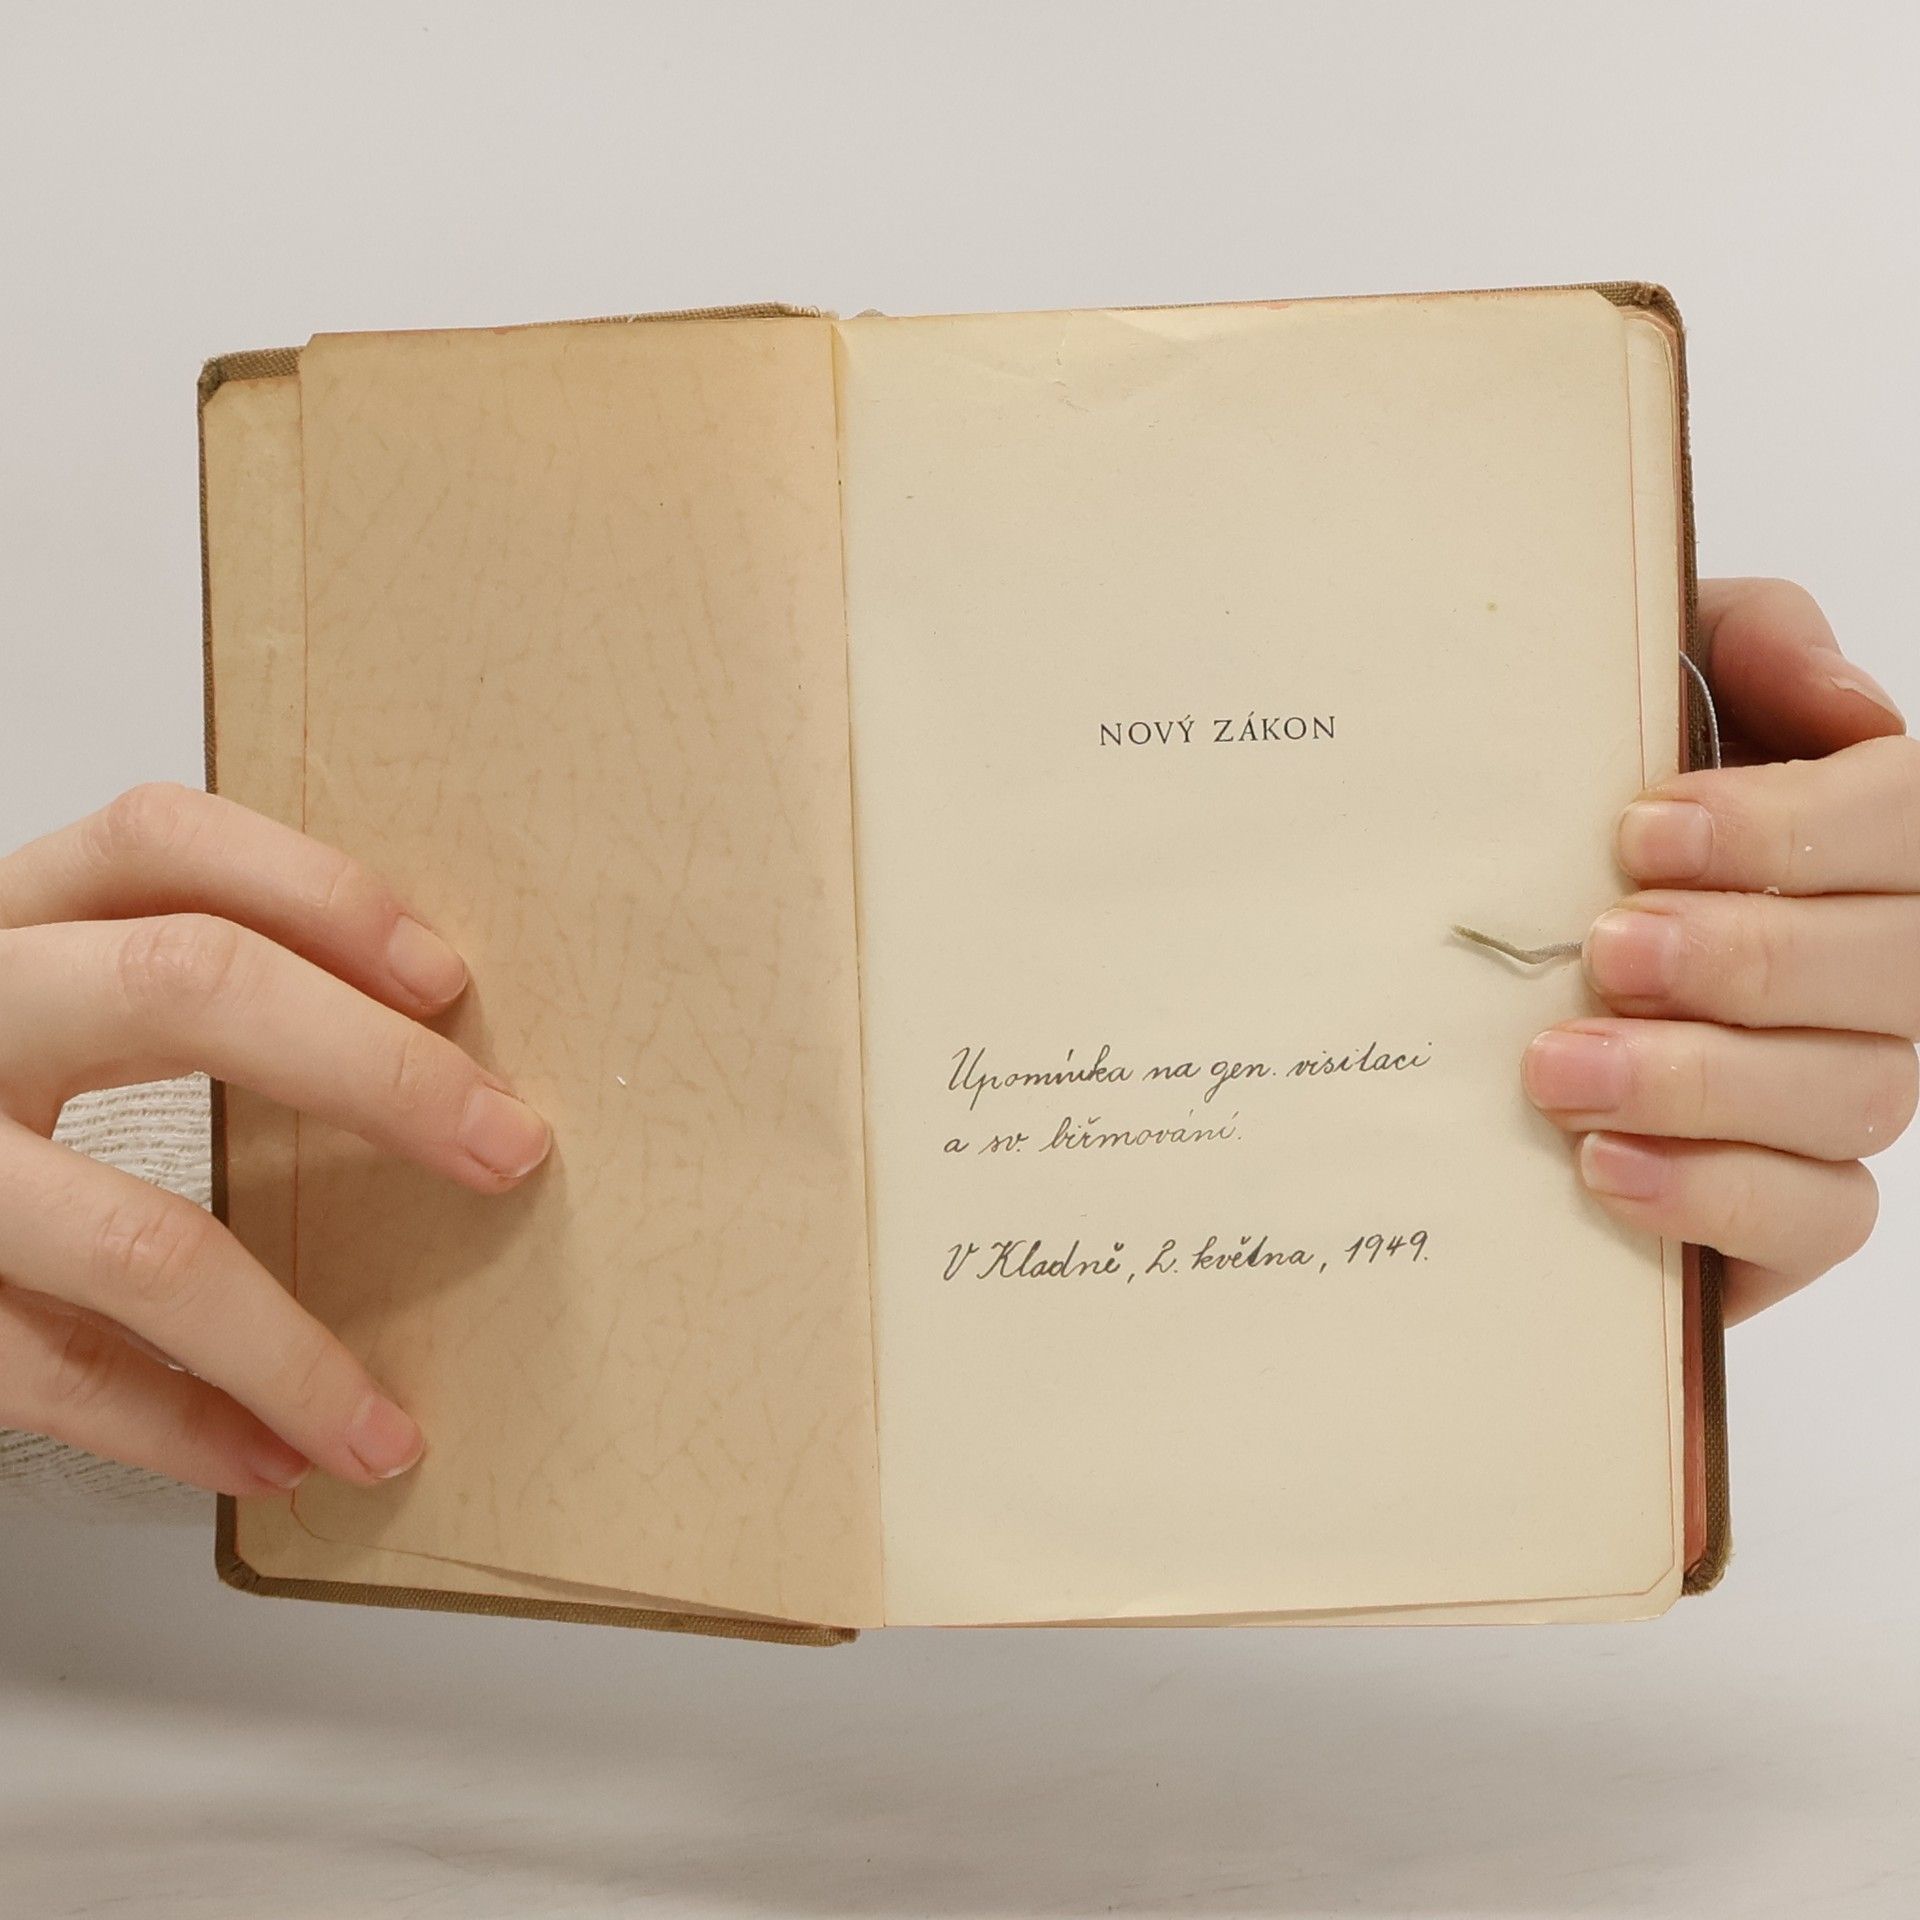 NOVÝ ZÁKON
Upomínka na gen. visitaci
a sv. biřmování.
V Kladně, 2. května, 1949.